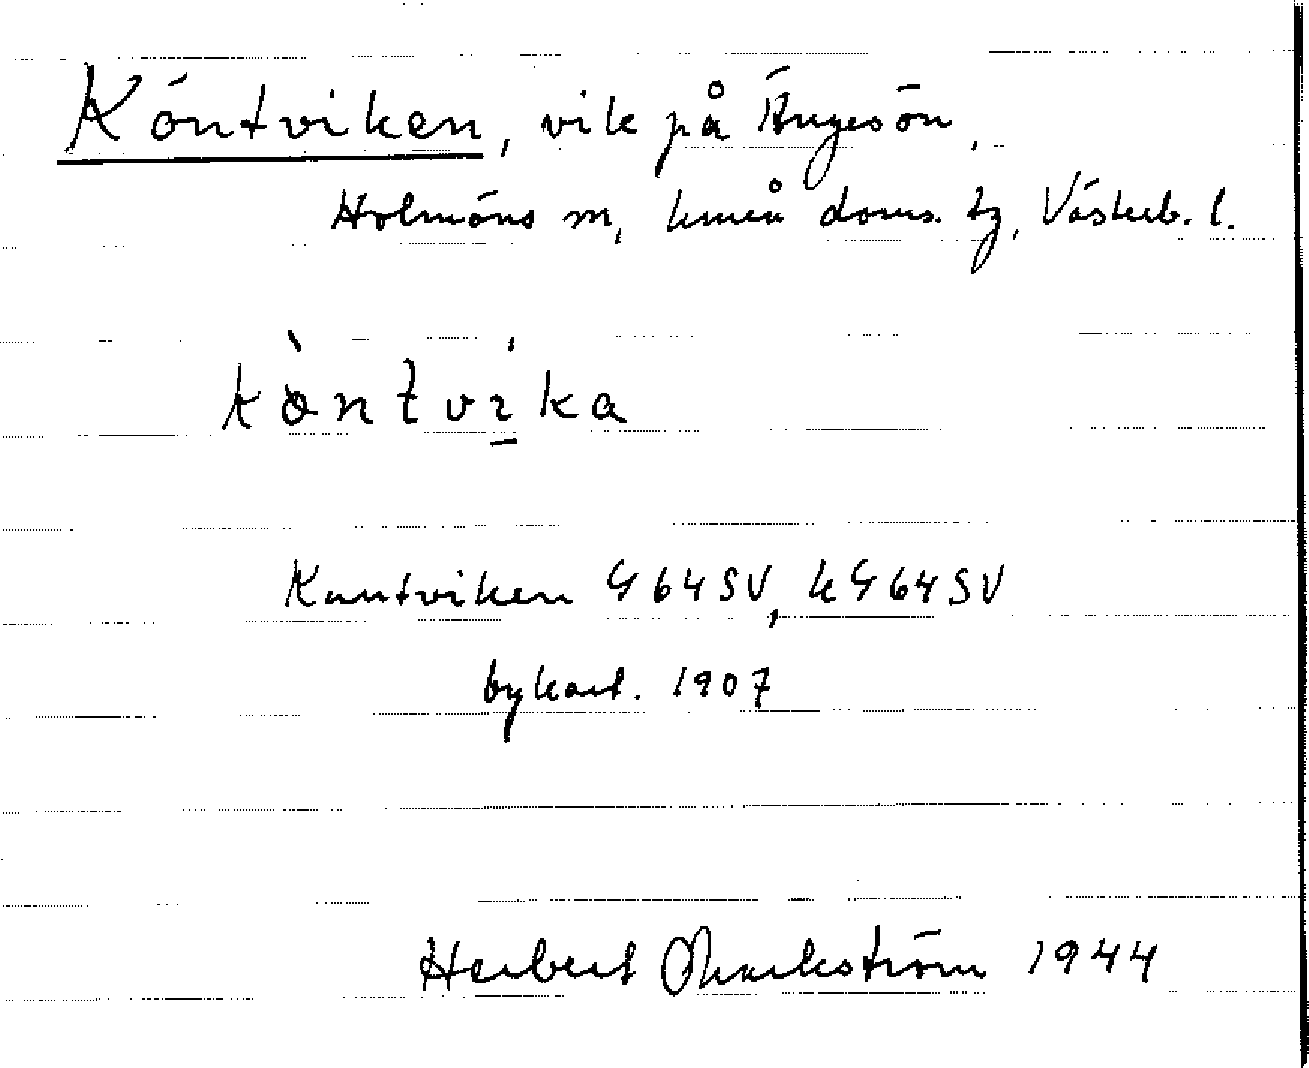 Köntviken, vik på Ängesön,
Holmöns m, Umeå doms. tg, Västerb. l.
kòntvika
Kuntviken G 64 SV, k G 64 SV
bykart. 1907
Herbert Markström 1944